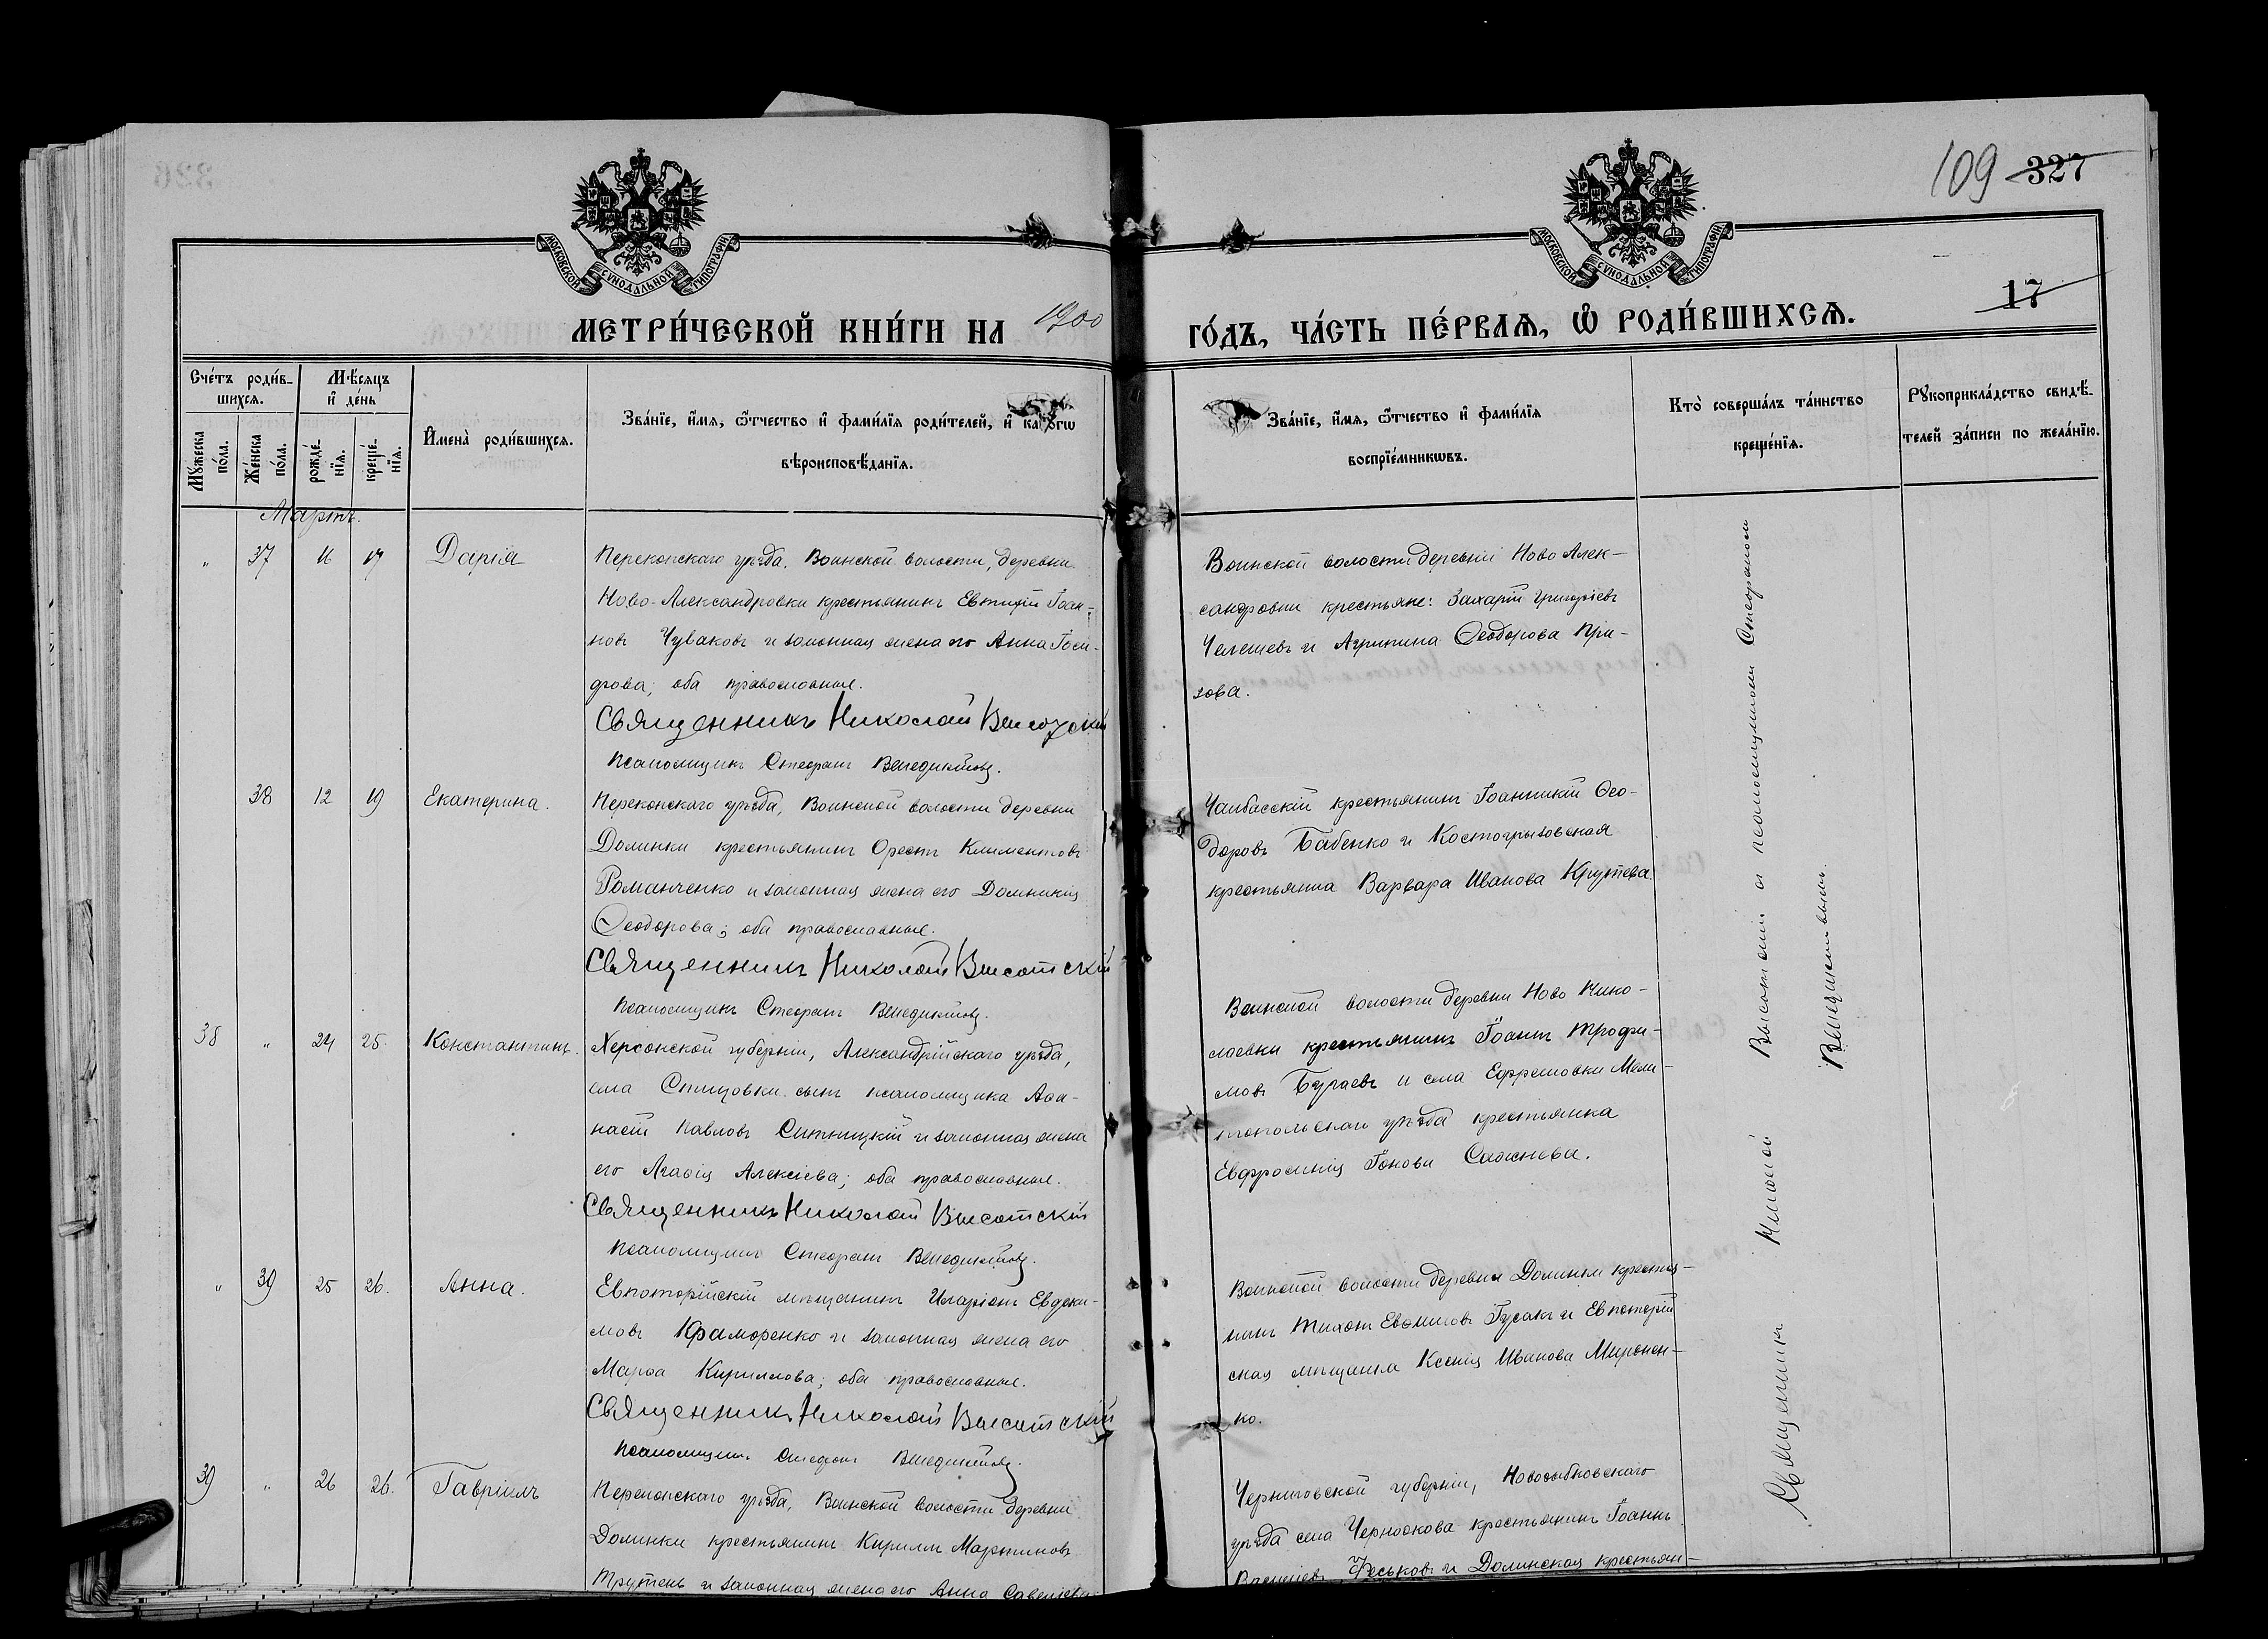 109 327
МОСКОВСКОЙ СУНОДАЛЬНОЙ ТИПОГРАФІИ
МОСКОВСКОЙ СУНОДАЛЬНОЙ ТИПОГРАФІИ
17
МЕТРИ́ЧЕСКОЙ КНИ́ГИ НА 1900
ГО́ДЪ, ЧА́СТЬ ПЕ́РВАѦ, Ѡ҆ РОДИ́ВШИХСѦ.
Сче́тъ роди́в-
шихсѧ.
Мꙋжеска по́ла.
Же́нска по́ла.
Мѣ́сѧцъ и҆ де́нь
рожде́-нїѧ.
креще́-нїѧ.
И҆мена̀ роди́вшихсѧ.
Зва́нїе, и҆́мѧ, ѻ҆́тчество и҆ фами́лїѧ роди́телей, и҆ како́гѡ
вѣроисповѣ́данїѧ.
Зва́нїе, и҆́мѧ, ѻ҆́тчество и҆ фами́лїѧ
воспрїе́мникѡвъ.
Кто̀ соверша́лъ та́инство
креще́нїѧ.
Рꙋкоприкла́дство свидѣ́-
телей за́писи по жела́нїю.
Мартъ.
" 37 16 17 Дарія
Перекопскаго уѣзда, Воинской волости, деревни
Ново-Александровки крестьянинъ Евтихій Іоан-
новъ Чуваковъ и законная жена его Анна Іоси-
фова; оба православные.
Священникъ Николай Высотскій
Псаломщикъ Стефанъ Венедиктовъ.
Воинской волости деревни Ново Алек-
сандровки крестьяне: Захарій Григоріевъ
Челышевъ и Агрипина Ѳеодорова При-
зова.
38 12 19 Екатерина.
Перекопскаго уѣзда, Воинской волости деревни
Долинки крестьянинъ Орестъ Климентовъ
Романченко и законная жена его Домникія
Ѳеодорова; оба православные.
Священникъ Николай Высотскій
Псаломщикъ Стефанъ Венедиктовъ.
Чалбасскій крестьянинъ Іоанникій Ѳео-
доровъ Бабенко и Костогрызовская
крестьянка Варвара Иванова Крутева.
38 " 24 25. Константинъ.
Херсонской губерніи, Александрійскаго уѣзда,
села Спицовки сынъ псаломщика Аѳа-
насій Павловъ Ситницкій и законная жена
его Агаѳія Алексіева; оба православные.
Священникъ Николай Высотскій
Псаломщикъ Стефанъ Венедиктовъ.
Воинской волости деревни Ново Нико-
лаевки крестьянинъ Іоаннъ Трофи-
мовъ Бугаевъ и села Ефремовки Мели-
топольскаго уѣзда крестьянка
Евфросинія Іонова Сажнева.
" 39 25 26. Анна.
Евпаторійскій мѣщанинъ Иларіонъ Евдоки-
мовъ Краморенко и законная жена его
Марѳа Кириллова; оба православные.
Священникъ Николай Высотскій
Псаломщикъ Стефанъ Венедиктовъ.
Воинской волости деревни Долинки крестья-
нинъ Тихонъ Евѳимовъ Гусакъ и Евпаторій
ская мѣщанка Ксенія Иванова Миронен-
ко.
39 " 26 26. Гавріилъ
Перекопскаго уѣзда, Воинской волости деревни
Долинки крестьянинъ Кириллъ Мартиновъ
Трутень и законная жена его Анна Савеліева
Черниговской губерніи, Новозыбковскаго
уѣзда села Черноокова крестьянинъ Іоаннъ
Васильевъ Феськовъ и Долинская крестьян-
Священникъ Николай Высотскій и псаломщикомъ Стефаномъ
Венедиктовымъ.